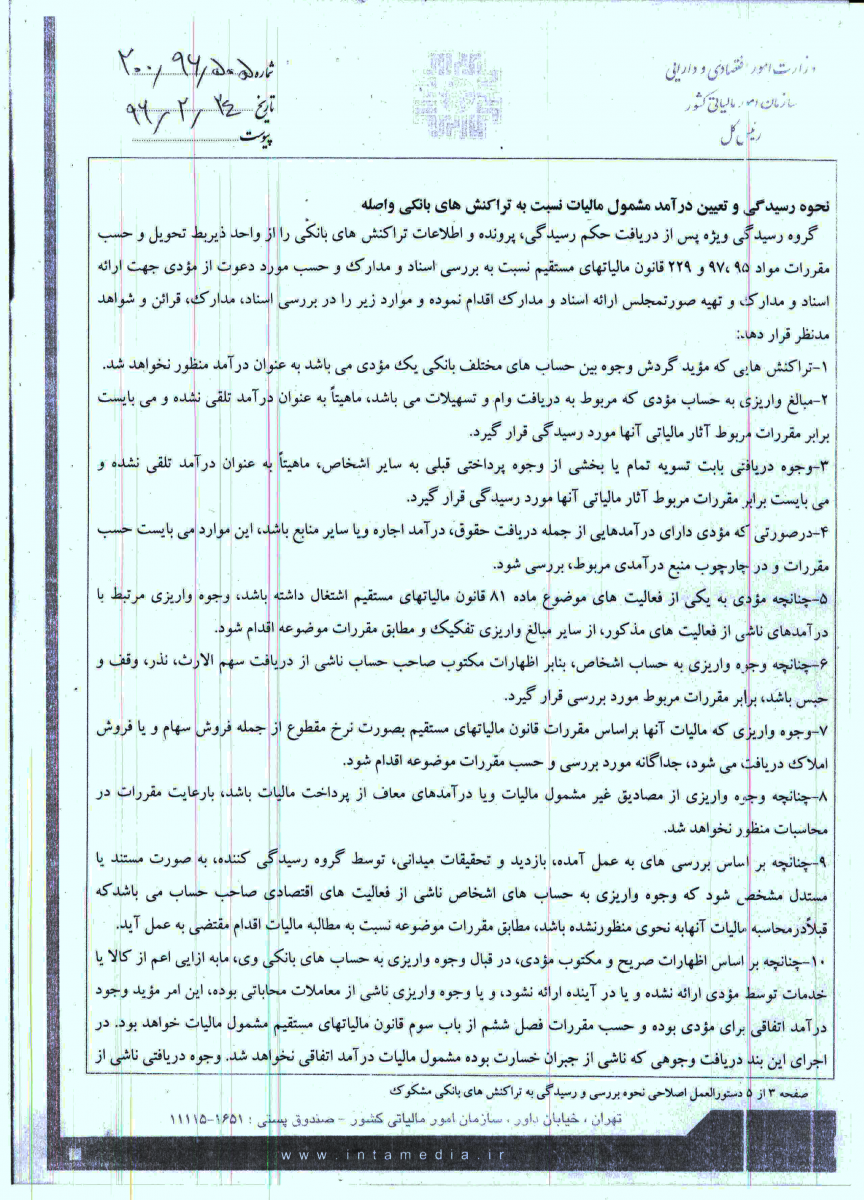 وزارت امور اقتصادی و دارایی
سازمان امور مالیاتی کشور
رئیس کل
شماره ۲۰۰/۹۶/۵۰۵
تاریخ ۹۶/۲/۲۴
پیوست
نحوه رسیدگی و تعیین درآمد مشمول مالیات نسبت به تراکنش های بانکی واصله
گروه رسیدگی ویژه پس از دریافت حکم رسیدگی، پرونده و اطلاعات تراکنش های بانکی را از واحد ذیربط تحویل و حسب
مقررات مواد ۹۵ ،۹۷ و ۲۲۹ قانون مالیاتهای مستقیم نسبت به بررسی اسناد و مدارک و حسب مورد دعوت از مؤدی جهت ارائه
اسناد و مدارک و تهیه صورتمجلس ارائه اسناد و مدارک اقدام نموده و موارد زیر را در بررسی اسناد، مدارک، قرائن و شواهد
مدنظر قرار دهد:
۱-تراکنش هایی که مؤید گردش وجوه بین حساب های مختلف بانکی یک مؤدی می باشد به عنوان درآمد منظور نخواهد شد.
۲-مبالغ واریزی به حساب مؤدی که مربوط به دریافت وام و تسهیلات می باشد، ماهیتاً به عنوان درآمد تلقی نشده و می بایست
برابر مقررات مربوط آثار مالیاتی آنها مورد رسیدگی قرار گیرد.
۳-وجوه دریافتی بابت تسویه تمام یا بخشی از وجوه پرداختی قبلی به سایر اشخاص، ماهیتاً به عنوان درآمد تلقی نشده و
می بایست برابر مقررات مربوط آثار مالیاتی آنها مورد رسیدگی قرار گیرد.
۴-درصورتی که مؤدی دارای درآمدهایی از جمله دریافت حقوق، درآمد اجاره ویا سایر منابع باشد، این موارد می بایست حسب
مقررات و در چارچوب منبع درآمدی مربوط، بررسی شود.
۵-چنانچه مؤدی به یکی از فعالیت های موضوع ماده ۸۱ قانون مالیاتهای مستقیم اشتغال داشته باشد، وجوه واریزی مرتبط با
درآمدهای ناشی از فعالیت های مذکور، از سایر مبالغ واریزی تفکیک و مطابق مقررات موضوعه اقدام شود.
۶-چنانچه وجوه واریزی به حساب اشخاص، بنابر اظهارات مکتوب صاحب حساب ناشی از دریافت سهم الارث، نذر، وقف و
حبس باشد، برابر مقررات مربوط مورد بررسی قرار گیرد.
۷-وجوه واریزی که مالیات آنها براساس مقررات قانون مالیاتهای مستقیم بصورت نرخ مقطوع از جمله فروش سهام و یا فروش
املاک دریافت می شود، جداگانه مورد بررسی و حسب مقررات موضوعه اقدام شود.
۸-چنانچه وجوه واریزی از مصادیق غیر مشمول مالیات ویا درآمدهای معاف از پرداخت مالیات باشد، بارعایت مقررات در
محاسبات منظور نخواهد شد.
۹-چنانچه بر اساس بررسی های به عمل آمده، بازدید و تحقیقات میدانی، توسط گروه رسیدگی کننده، به صورت مستند یا
مستدل مشخص شود که وجوه واریزی به حساب های اشخاص ناشی از فعالیت های اقتصادی صاحب حساب می باشدکه
قبلاًدرمحاسبه مالیات آنهابه نحوی منظورنشده باشد، مطابق مقررات موضوعه نسبت به مطالبه مالیات اقدام مقتضی به عمل آید.
۱۰-چنانچه بر اساس اظهارات صریح و مکتوب مؤدی، در قبال وجوه واریزی به حساب های بانکی وی، مابه ازایی اعم از کالا یا
خدمات توسط مؤدی ارائه نشده و یا در آینده ارائه نشود، و یا وجوه واریزی ناشی از معاملات محاباتی بوده، این امر مؤید وجود
درآمد اتفاقی برای مؤدی بوده و حسب مقررات فصل ششم از باب سوم قانون مالیاتهای مستقیم مشمول مالیات خواهد بود. در
اجرای این بند دریافت وجوهی که ناشی از جبران خسارت بوده مشمول مالیات درآمد اتفاقی نخواهد شد. وجوه دریافتی ناشی از
صفحه ۳ از ۵ دستورالعمل اصلاحی نحوه بررسی و رسیدگی به تراکنش های بانکی مشکوک
تهران ، خیابان داور ، سازمان امور مالیاتی کشور - صندوق پستی : ۱۶۵۱-۱۱۱۱۵
www.intamedia.ir